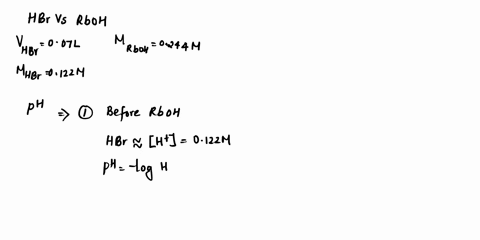 HBr Vs RbOH
V HBr = 0.07L M RbOH = 0.244M
M HBr = 0.122M
pH ⇒ ① Before RbOH
HBr ≈ [H+] = 0.122M
pH = -log H